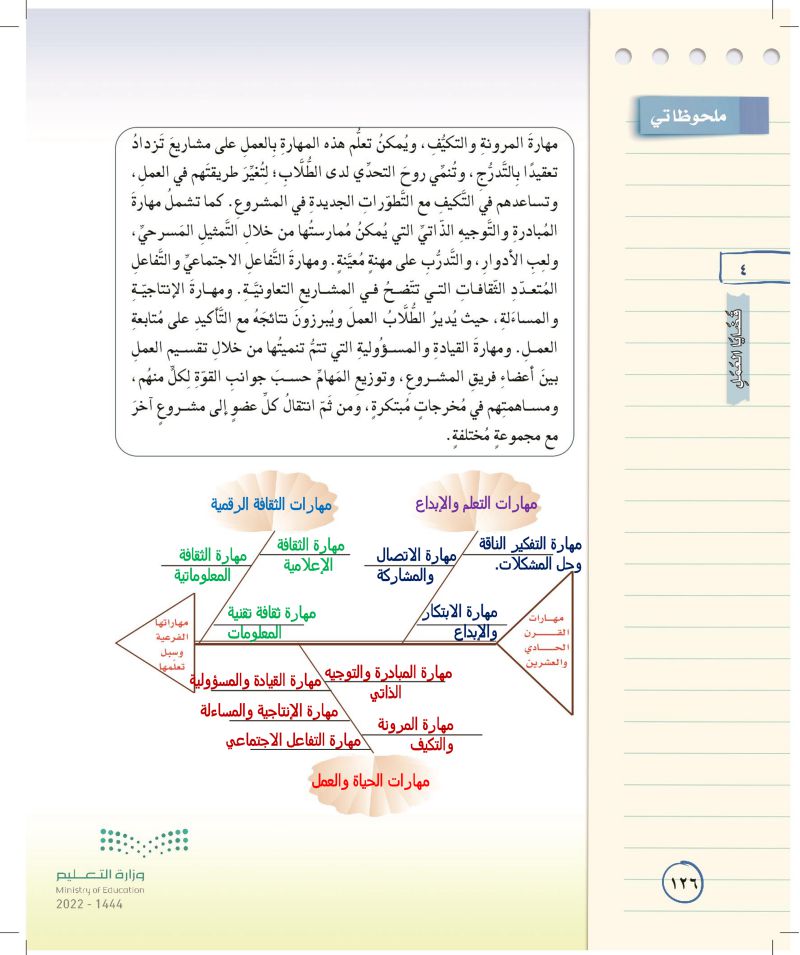 ملحوظاتي
٤
قضايا العمل
مهارةَ المرونةِ والتكيُّفِ، ويُمكنُ تعلُّم هذه المهارةِ بِالعملِ على مشاريعَ تَزدادُ
تعقيدًا بِالتَّدرُّجِ، وتُنمِّي روحَ التحدِّي لدى الطُّلَّابِ؛ لِتُغيِّرَ طريقتَهم في العملِ،
وتساعدهم في التَّكيفِ مع التَّطوّراتِ الجديدةِ في المشروعِ. كما تشملُ مهارةَ
المُبادرةِ والتَّوجيهِ الذّاتيِّ التي يُمكنُ مُمارستُها من خلالِ التَّمثيلِ المَسرحيِّ،
ولعبِ الأدوارِ، والتَّدرُّبِ على مهنةٍ مُعيَّنةٍ. ومهارةَ التَّفاعلِ الاجتماعيِّ والتَّفاعلِ
المُتعدّدِ الثَّقافاتِ التي تتّضحُ في المشاريعِ التعاونيَّةِ. ومهارةَ الإنتاجيّةِ
والمساءَلةِ، حيث يُديرُ الطُّلَّابُ العملَ ويُبرزونَ نتائجَهُ مع التَّأكيدِ على مُتابعةِ
العملِ. ومهارةَ القيادةِ والمسؤُوليةِ التي تتمُّ تنميتُها من خلالِ تقسيمِ العملِ
بينَ أعضاءِ فريقِ المشروعِ، وتوزيعِ المَهامِّ حسبَ جوانبِ القوّةِ لِكلٍّ منهُم،
ومساهمتِهم في مُخرجاتٍ مُبتكرةٍ، وَمن ثَمّ انتقالُ كلِّ عضوٍ إلى مشروعٍ آخرَ
مع مجموعةٍ مُختلفةٍ.
مهارات التعلم والإبداع
مهارات الثقافة الرقمية
مهارة التفكير الناقة
وحل المشكلات.
مهارة الاتصال
والمشاركة
مهارة الثقافة
الإعلامية
مهارة الثقافة
المعلوماتية
مهارة الابتكار
والإبداع
مهارة ثقافة تقنية
المعلومات
مهارات
القرن
الحادي
والعشرين
مهاراتها
الفرعية
وسبل
تعلّمها
مهارة المبادرة والتوجيه
الذاتي
مهارة القيادة والمسؤولية
مهارة الإنتاجية والمساءلة
مهارة المرونة
والتكيف
مهارة التفاعل الاجتماعي
مهارات الحياة والعمل
وزارة التعليم
Ministry of Education
2022 - 1444
١٢٦